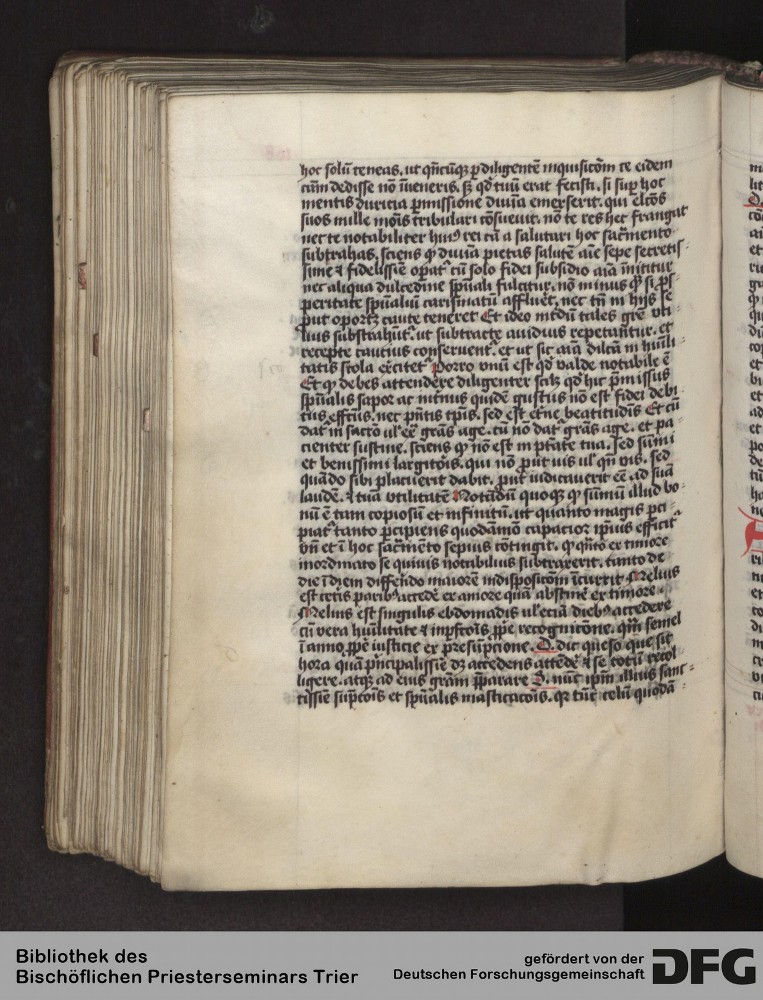 hoc solū teneas. ut qn̄cūqꝫ ꝑ diligentē inquisicōm te eidem
cām dedisse nō īveneris. sꝫ qd̓ tuū erat fecisti. si sup̄ hoc
mentis duricia ꝑmissione diuīa emerserit. qui elcōs
suos mille mōis tribulari cōsueuit. nō te res hec frangat
nec te notabiliter huiꝰ rei cā a salutari hoc sac̄mento
subtrahas. sciens qꝫ diuīa pietas salutē aīe sepe secretis-
sime ⁊ fidelissīe operat᷑ cū solo fidei subsidio aīa īnititur
nec aliqua dulcedine sp̄uali fulcitur. nō minus qꝫ si ꝓs-
peritate sp̄ualiū carismatū afflueret. nec tn̄ in hijs se
put oportꝫ caute teneret Et ideo int̓dū tales gr̄e vti-
lius substrahūt᷑. ut subtracte auidius repetant̄ur. et
recepte caucius conseruent᷑. et ut sic aīa dilc̄a in huīli-
tatis scola exercitet᷑ Porro vnū est qd̓ valde notabile ē
Et qꝫ debes attendere diligenter scilꝫ qd̓ hic p̄missus
sp̄ualis sapor ac internus quidē gustus nō est fidei debi-
tus effc̄us. nec p̄ntis tp̄is. sed est et̓ne beatitudīs Et cū
dat᷑ in sac̄ro ul̓ ex̄ gr̄as age. cū nō dat᷑ gr̄as age. et pa-
cienter sustine. sciens qꝫ nō est in ptāte tua. sed sūmi
et benissimi largitōis. qui nō put vis ul̓ qn̄ vis. sed
quādo sibi placuerit dabit. put iudicauerit eē ad suā
laudē. ⁊ tuā vtilitatē Notādū quoqꝫ qꝫ sūmū illud bo-
nū ē tam copiosū et infinitū. ut quanto magis ꝑci-
piat᷑ tanto ꝑcipiens quodāmō capacior ip̄ius efficit᷑
vn̄ et ī hoc sac̄mēto sepius cōtingit. qꝫ qn̄to ex timore
inordinato se quiuis notabilius subtraxerit. tanto de
die ī diem differēdo maiorē indisposicōm īcurrit Melius
est cet̓is paribꝰ accedē ex amore quā abstinē ex timore.
Melius est singulis ebdomadis ul̓ eciā diebꝰ accedere
cū vera huīlitate ⁊ inpfcōis ꝓpe recognicōne. qm̄ semel
ī anno ꝓpe iusticie ex presūpcione. D. dic queso que sit
hora quā principalissīe dꝫ accedens attēdē ⁊ se totū recol-
ligere. atqꝫ ad eius gr̄am p̄parare D. nūc ip̄m illius sanc-
tissīe sūpcōis et sp̄ualis masticacōis. qꝛ tūc celū quodā
Bibliothek des
Bischöflichen Priesterseminars Trier
gefördert von der
Deutschen Forschungsgemeinschaft
DFG